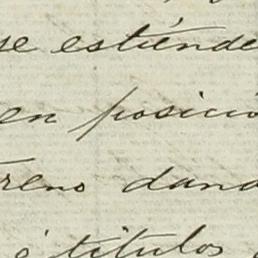 se estiénde
en posició
reno dand
é titulos